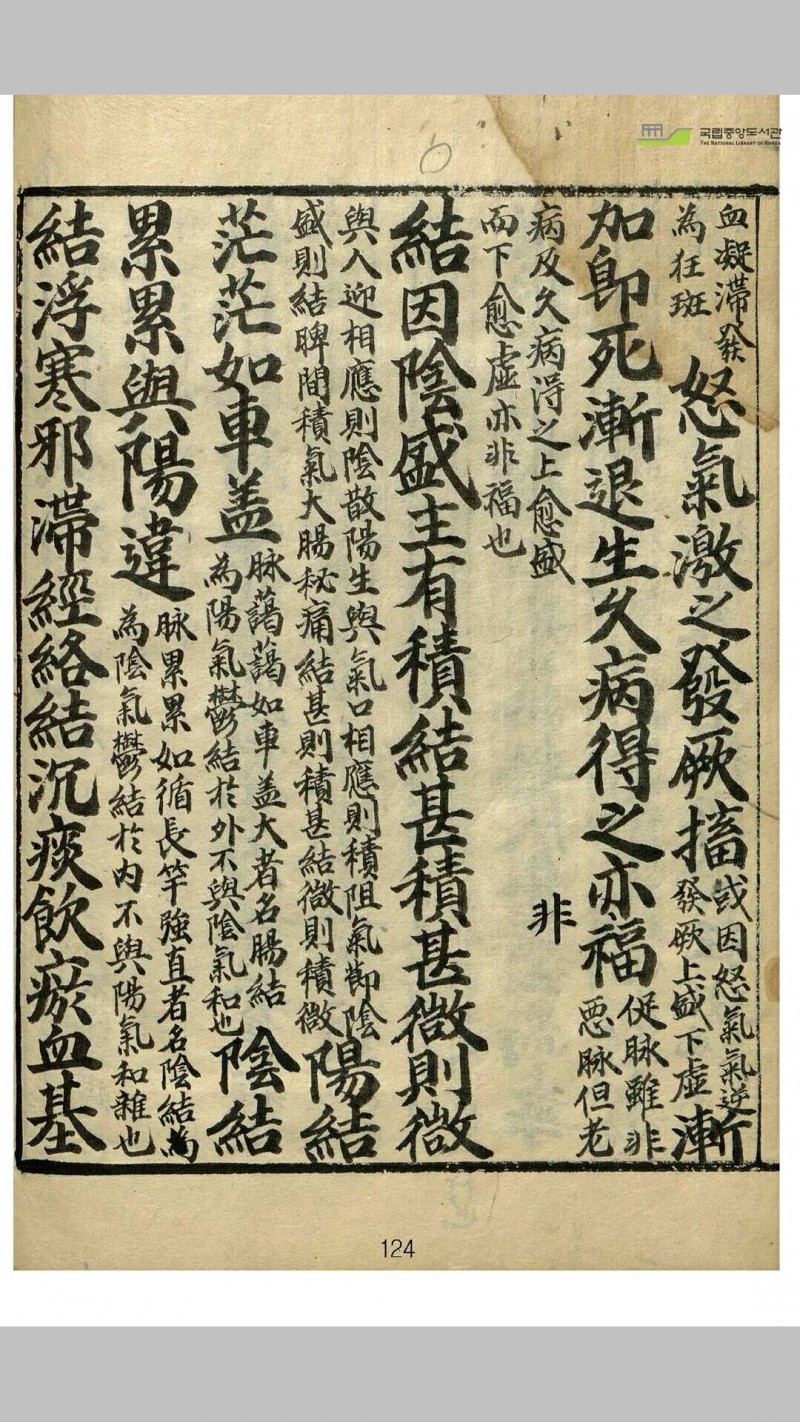 국립중앙도서관
THE NATIONAL LIBRARY OF KOREA
血凝滯發
為狂斑
怒氣激之發厥搐
或因怒氣氣逆
發厥上盛下虛
漸
加即死漸退生久病得之亦福
促脉雖非
惡脉但老
非
病及久病淂之上愈盛
而下愈虛亦非福也
結因陰盛主有積結甚積甚微則微
與人迎相應則陰散陽生與氣口相應則積阻氣節陰
盛則結脾間積氣大腸秘痛結甚則積甚結微則積微
陽結
茫茫如車盖
脉藹藹如車盖大者名腸結
為陽氣鬱結於外不與陰氣和也
陰結
累累與陽違
脉累累如循長竿強直者名陰結為
為陰氣鬱結於內不與陽氣和雜也
結浮寒邪滯經絡結沉痰飲瘀血基
124